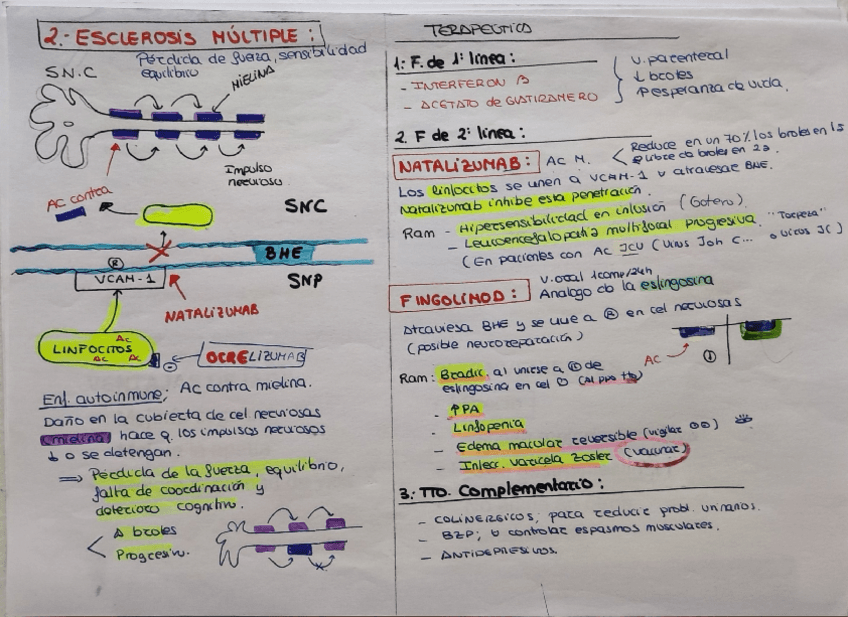 2.- ESCLEROSIS MÚLTIPLE:
Pérdida de fuerza, sensibilidad
equilibrio
S.N.C
MIELINA
Impulso
nervioso
AC contra
SNC
BHE
SNP
R
VCAM-1
NATALIZUMAB
LINFOCITOS
AC
AC
AC
OCRELIZUMAB
Enf. autoinmune; Ac contra mielina.
Daño en la cubierta de cel nerviosas
(mielina) hace q. los impulsos nerviosos
↓ o se detengan.
⇒ Pérdida de la fuerza, equilibrio,
falta de coordinación y
deterioro cognitivo.
A broles
Progresivo.
TERAPEUTICO
1: F. de 1ª línea:
- INTERFERON B
- ACETATO de GLATIRAMERO
V. parenteral
↓ broles
↑ esperanza de vida.
2. F de 2ª línea:
NATALIZUMAB: AC M.
Reduce en un 70% los broles en 1
libre de broles en 2a.
Los linfocitos se unen a VCAM-1 y atraviesae BHE.
Natalizumab inhibe esta penetración.
Ram - Hipersensibilidad en infusión (Gotero)
- Leucoencefalopatía multifocal progresiva. "Torpeza"
(En pacientes con Ac JCV (Virus Joh C... o virus JC)
FINGOLIMOD:
V. oral 1comp/24h
Analogo de la esfingosina
Atraviesa BHE y se une a R en cel nerviosas
(posible neuroreparación)
AC
Ram: Bradic. al unirse a R de
esfingosina en cel
- ↑PA
- Linfopenia
- Edema macular reversible (vigilar)
- Infecc. varicela zoster (vacunar)
3: TTO. Complementario:
- COLINERGICOS; para reducir probl. urinarios.
- BZP; controlar espasmos musculares.
- ANTIDEPRESIVOS.